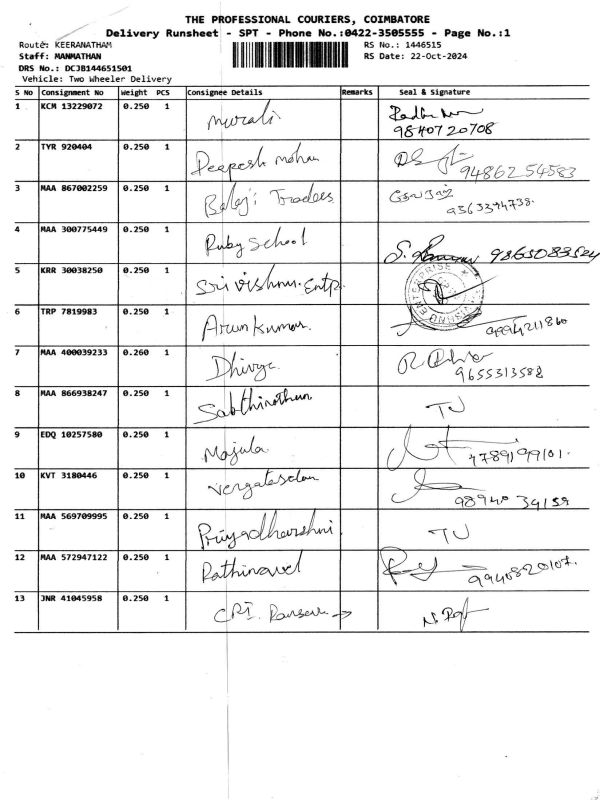 THE PROFESSIONAL COURIERS, COIMBATORE
Delivery Runsheet - SPT - Phone No.:0422-3505555 - Page No.:1
Route: KEERANATHAM
RS No.: 1446515
Staff: MANMATHAN
RS Date: 22-Oct-2024
DRS No.: DCJB144651501
Vehicle: Two Wheeler Delivery
S No Consignment No Weight PCS Consignee Details Remarks Seal & Signature
1 KCM 13229072 0.250 1 Murali
9840720708
2 TYR 920404 0.250 1 Deepesh Mohan
9486254583
3 MAA 867002259 0.250 1 Balaji Traders
9363394738.
4 MAA 300775449 0.250 1 Ruby School
5 KRR 30038250 0.250 1 Sri Vishnu. Entp.
6 TRP 7819983 0.250 1 Arun Kumar.
9994211860
7 MAA 400039233 0.260 1 Dhivya
9655313582
8 MAA 866938247 0.250 1 TJ
9 EDQ 10257580 0.250 1 Majula
10 KVT 3180446 0.250 1
11 MAA 569709995 0.250 1 Priyadharshni. TJ
12 MAA 572947122 0.250 1 Rathinavel
9940820107.
13 JNR 41045958 0.250 1 CRI.